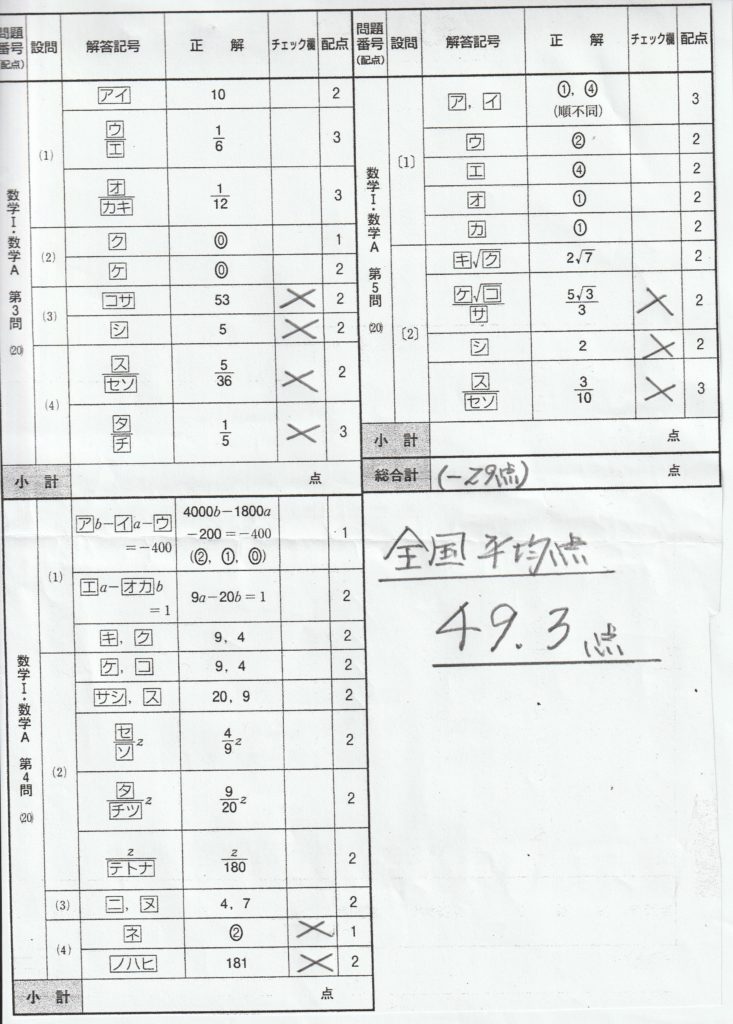 問題番号(配点) 設問 解答記号 正　解 チェック欄 配点
数学Ⅰ・数学A 第3問 (20)
(1) アイ 10 2
ウ/エ 1/6 3
オ/カキ 1/12 3
(2) ク ⓪ 1
ケ ⓪ 2
(3) コサ 53 × 2
シ 5 × 2
(4) ス/セソ 5/36 × 2
タ/チ 1/5 × 3
小　計 点
数学Ⅰ・数学A 第4問 (20)
(1) アb−イa−ウ =−400 4000b−1800a −200=−400 (②, ①, ⓪) 1
エa−オカb =1 9a−20b=1 2
キ, ク 9, 4 2
(2) ケ, コ 9, 4 2
サシ, ス 20, 9 2
セ/ソ z 4/9 z 2
タ/チツ z 9/20 z 2
z/テトナ z/180 2
(3) ニ, ヌ 4, 7 2
(4) ネ ② × 1
ノハヒ 181 × 2
小　計 点
問題番号(配点) 設問 解答記号 正　解 チェック欄 配点
数学Ⅰ・数学A 第5問 (20)
〔1〕 ア, イ ①, ④ (順不同) 3
ウ ② 2
エ ④ 2
オ ① 2
カ ① 2
〔2〕 キ√ク 2√7 2
ケ√コ/サ 5√3/3 × 2
シ 2 × 2
ス/セソ 3/10 × 3
小　計 点
総合計 (−29点) 点
全国平均点
49.3点